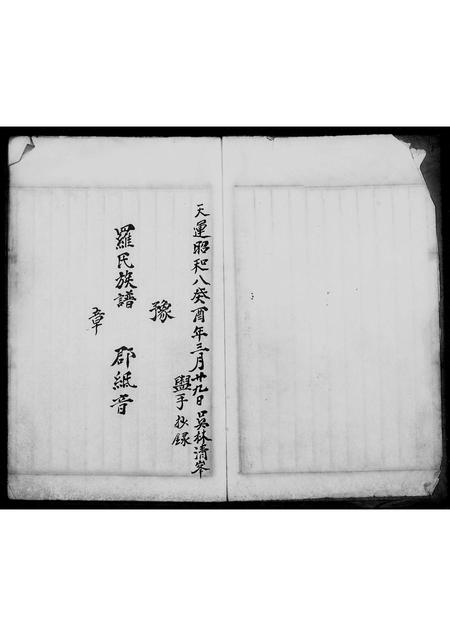 天運昭和八癸酉年三月廿九日吳林清峯
盥手抄錄
豫
羅氏族譜
郡紙音
章